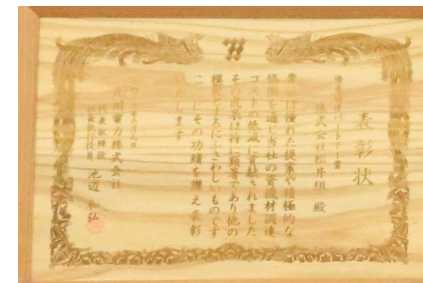 表彰状
優良資材パートナー賞
株式会社松井組 殿
貴社は優れた提案や積極的な
協働を通じ当社の資機材調達
コストの低減に貢献されました
その成果は特に顕著であり他の
模範とするにふさわしいものです
ここにその功績を称え表彰
いたします
九州電力株式会社
代表取締役
社長執行役員 池辺和弘